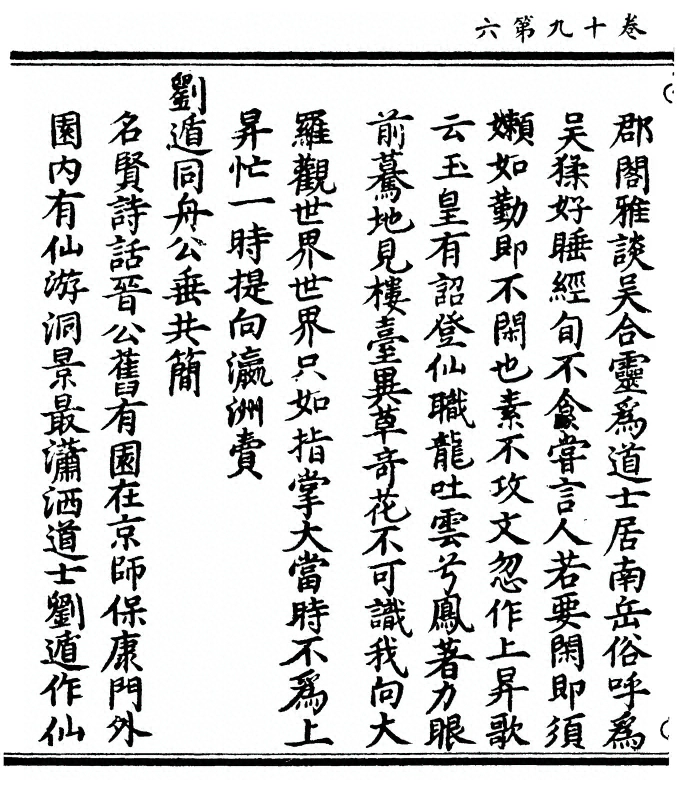 卷十九第六
郡閣雅談吳合靈爲道士居南岳俗呼爲
吳猱好睡經旬不食嘗言人若要閑即須
嬾如勤即不閑也素不攻文忽作上昇歌
云玉皇有詔登仙職龍吐雲兮鳳著力眼
前驀地見樓臺異草奇花不可識我向大
羅觀世界世界只如指掌大當時不爲上
昇忙一時提向瀛洲賣
劉遁同舟公垂共簡
名賢詩話晉公舊有園在京師保康門外
園内有仙游洞景最瀟洒道士劉遁作仙